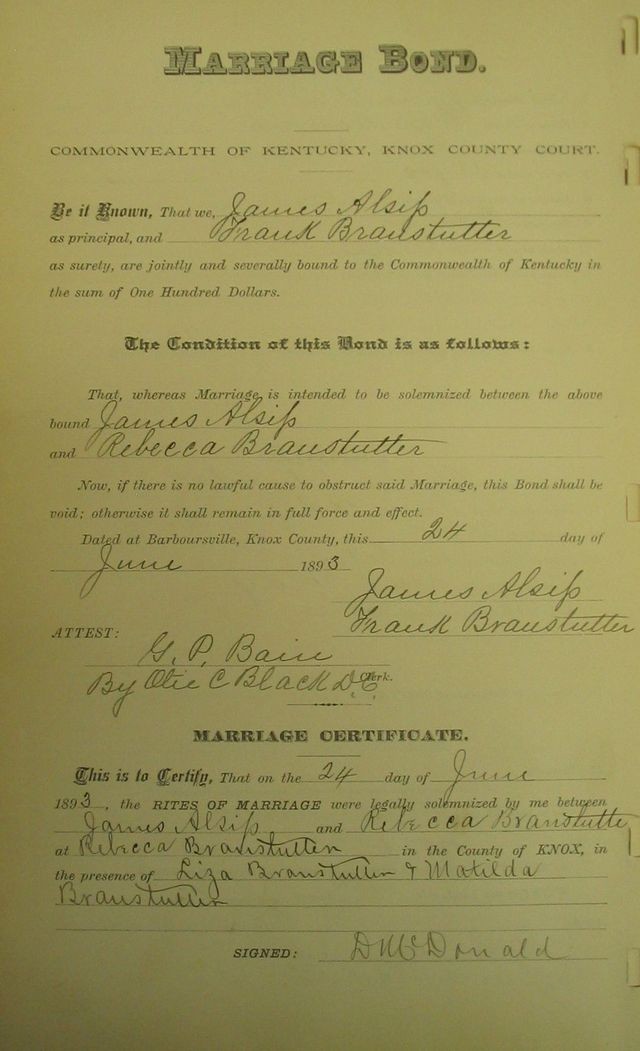 MARRIAGE BOND.
COMMONWEALTH OF KENTUCKY, KNOX COUNTY COURT.
Be it Known, That we, James Alsip
as principal, and Frank Branstutter
as surety, are jointly and severally bound to the Commonwealth of Kentucky in
the sum of One Hundred Dollars.
The Condition of this Bond is as follows:
That, whereas Marriage is intended to be solemnized between the above
bound James Alsip
and Rebecca Branstutter
Now, if there is no lawful cause to obstruct said Marriage, this Bond shall be
void; otherwise it shall remain in full force and effect.
Dated at Barboursville, Knox County, this 24 day of
June 1893
James Alsip
Frank Branstutter
ATTEST:
G. P. Bain
By Otie C Black D.C. Clerk.
MARRIAGE CERTIFICATE.
This is to Certify, That on the 24 day of June
1893, the RITES OF MARRIAGE were legally solemnized by me between
James Alsip and Rebecca Branstutte
at Rebecca Branstutter in the County of KNOX, in
the presence of Liza Branstutter & Matilda
Branstutter
SIGNED: D McDonald